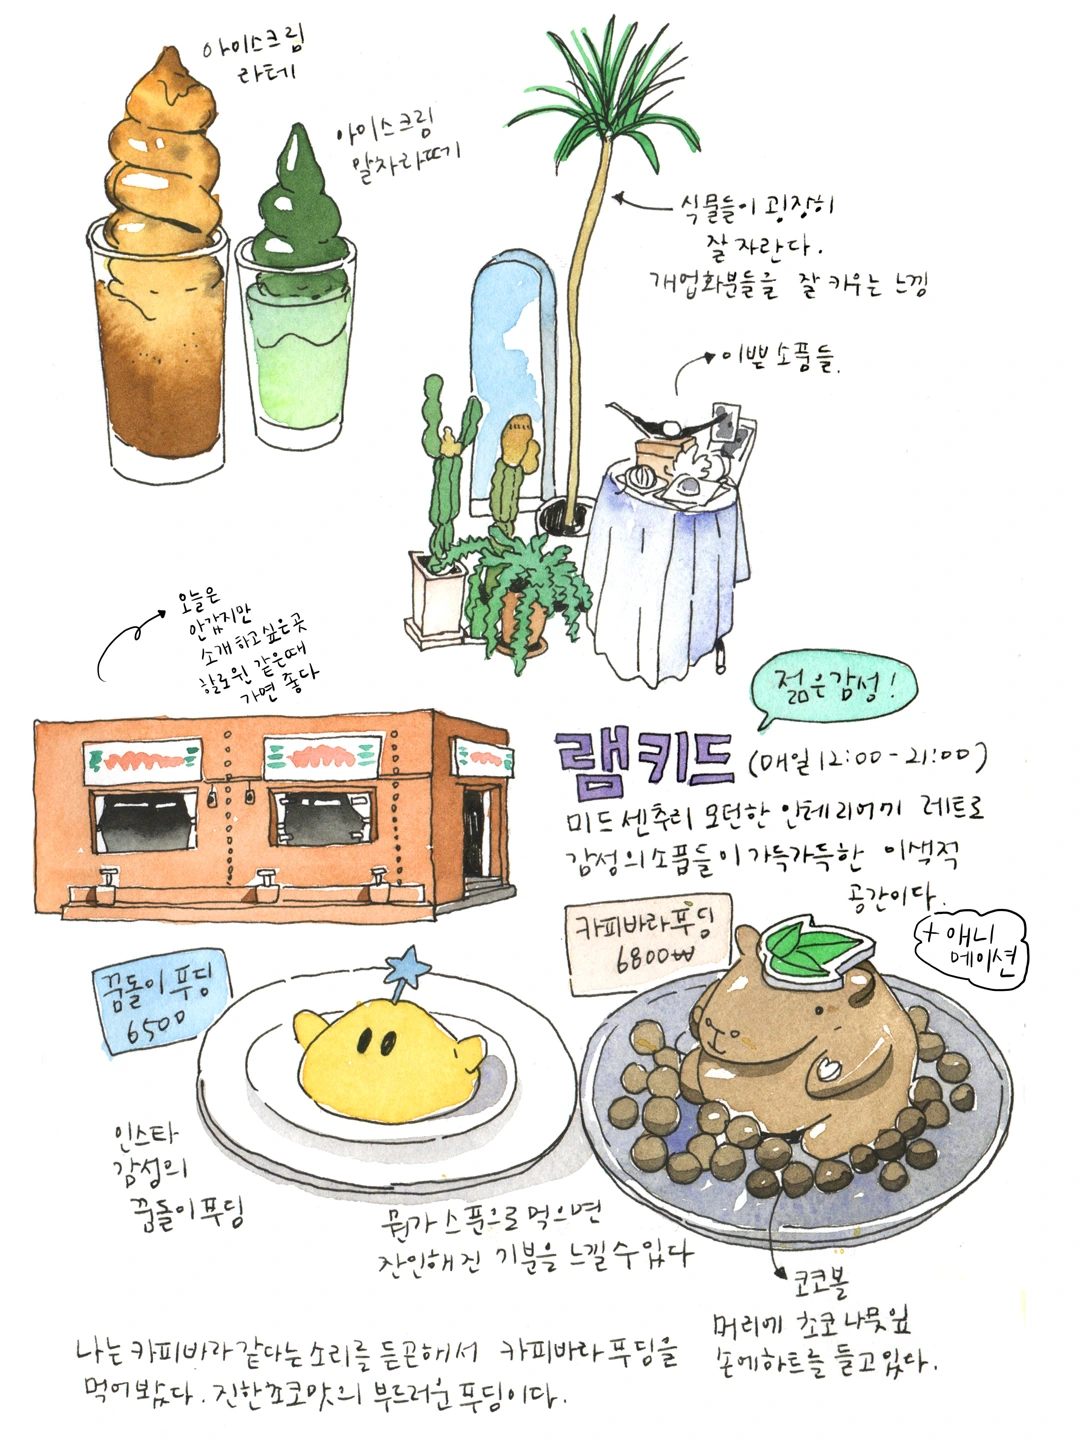 아이스크림
라떼
아이스크림
말차라떼
식물들이 굉장히
잘 자란다.
개업화분들을 잘 키우는 느낌
이쁜 소품들.
오늘은
안갔지만
소개하고싶은곳
할로윈 같은때
가면 좋다
젊은감성!
램키드 (매일 12:00-21:00)
미드센츄리 모던한 인테리어에 레트로
감성의소픔들이 가득가득한 이색적
공간이다.
카피바라푸딩
6800₩
+ 애니
메이션
꿈돌이 푸딩
6500
인스타
감성의
꿈돌이푸딩
뭔가 스푼으로 먹으면
잔인해진 기분을 느낄수있다
코코볼
머리에 초코나뭇잎
손에하트를 들고있다.
나는 카피바라같다는소리를 듣곤해서 카피바라푸딩을
먹어보았다. 진한초코맛의 부드러운 푸딩이다.